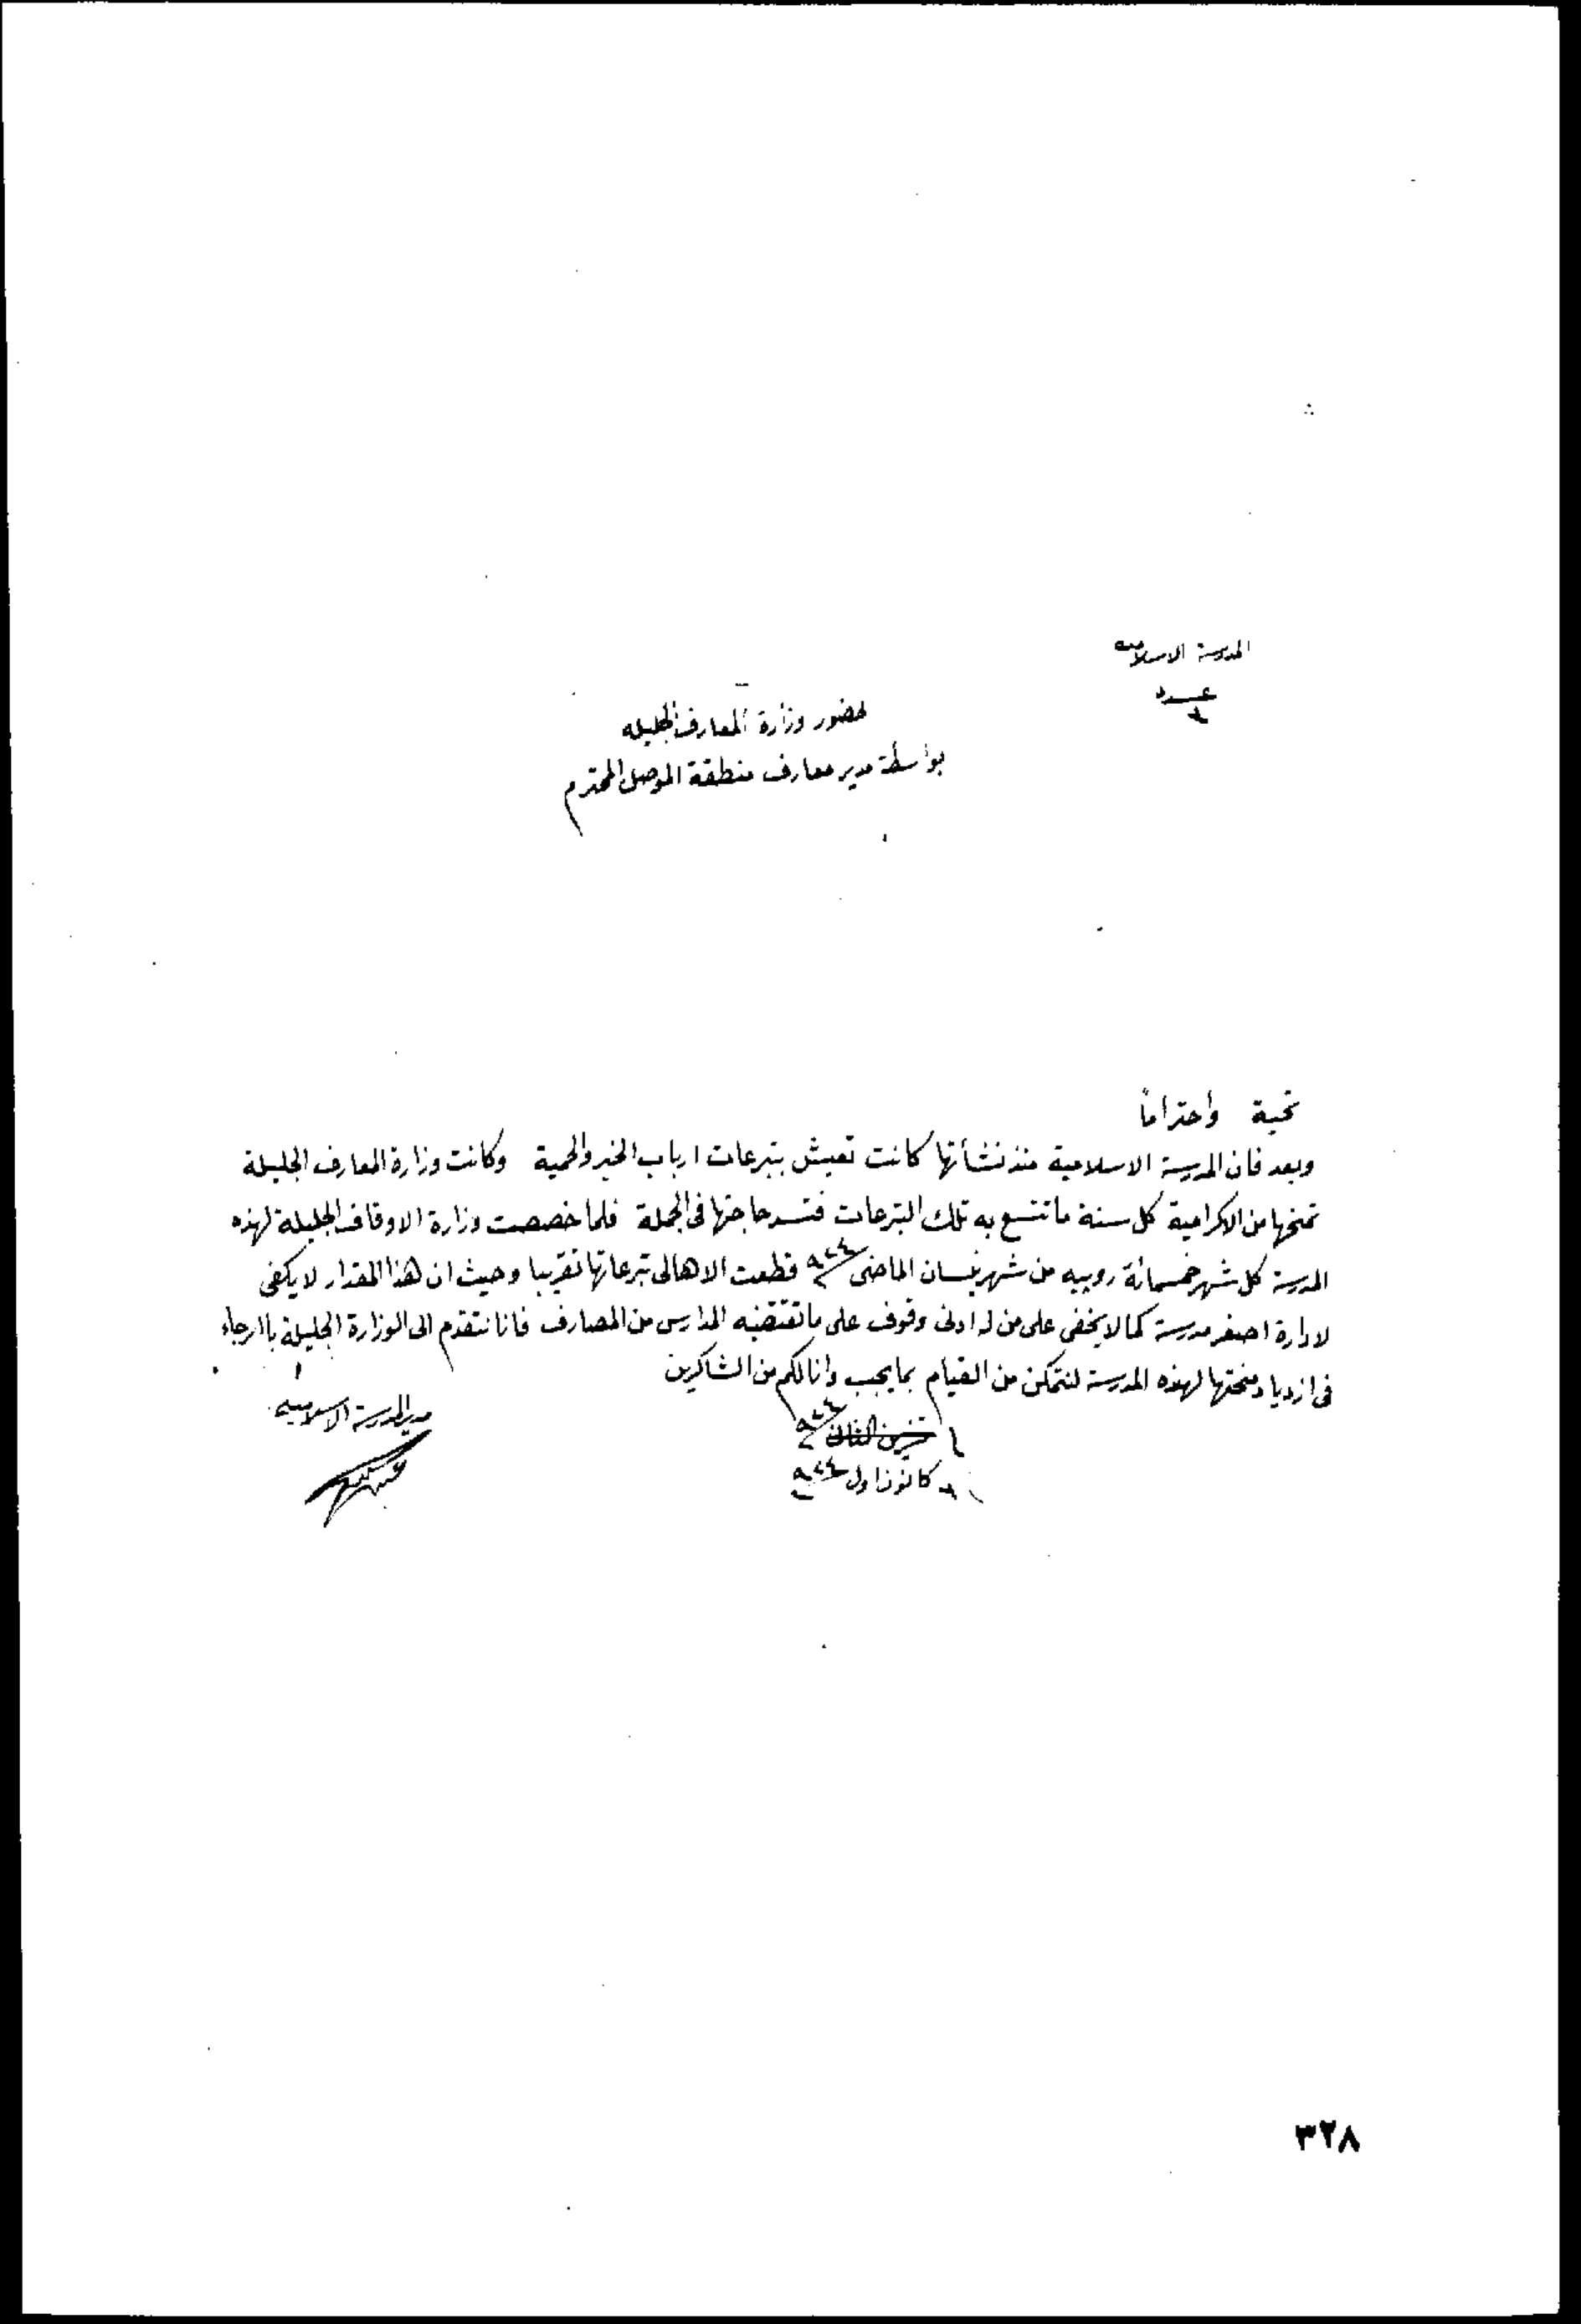 المدرسة الاسلاميه
عدد
لحضور وزارة المعارف الجليله
بواسطة مدير معارف منطقة الموصل المحترم
تحية وأحتراماً
وبعد فان المدرسة الاسلامية منذ نشأتها كانت تعيش بتبرعات ارباب الخير والحمية وكانت وزارة المعارف الجليلة
تمنحها من الاكرامية كل سنة ما تتسع به تلك التبرعات فتسد حاجتها فى الجملة فلما خصصت وزارة الاوقاف الجليلة لهذه
المدرسة كل شهر خمسمائة روبيه من شهر نيسان الماضى ٩٢٤ قطعت الاهالى تبرعاتها تقريبا وحيث ان هذا المقدار لا يكفى
لادارة اصغر مدرسة كما لا يخفى على من له ادنى وقوف على ما تقتضيه المدارس من المصارف فانا نتقدم الى الوزارة الجليلة باالرجاء
فى ازدياد منحتها لهذه المدرسة لنتمكن من القيام بما يجب وانا لكم من الشاكرين
مدير المدرسة الاسلاميه
تشرين الثانى ٩٢٤
كانون اول ٩٢٤
٣٢٨